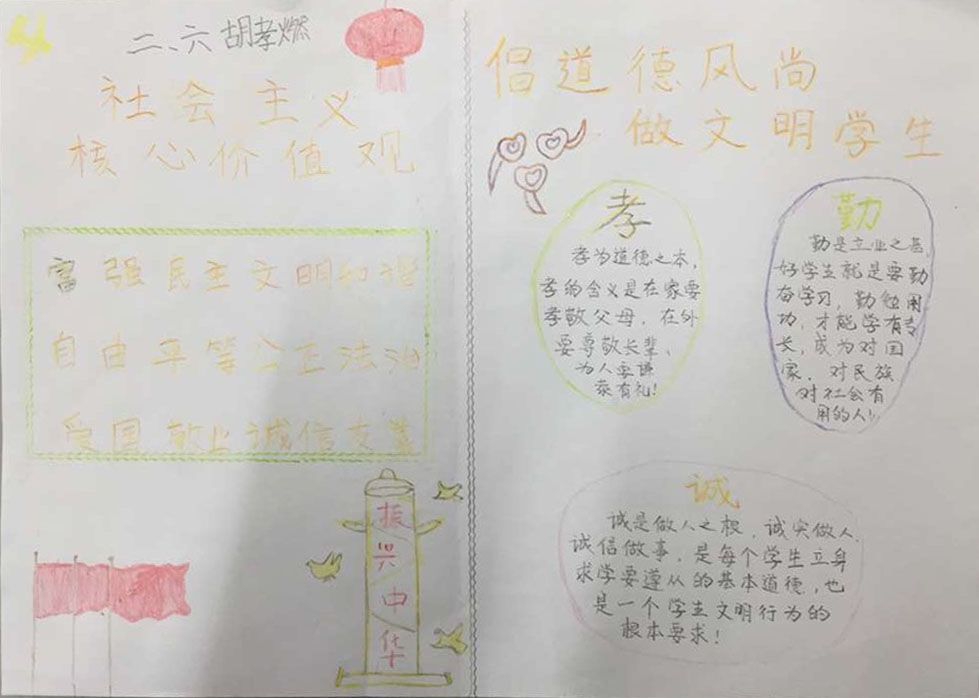 二、六 胡孝燃
社会主义
核心价值观
富强民主文明和谐
自由平等公正法治
爱国敬业诚信友善
振兴中华
倡道德风尚
做文明学生
孝
孝为道德之本，
孝的含义是在家要
孝敬父母，在外
要尊敬长辈、
为人要谦
恭有礼！
勤
勤是立业之基，
好学生就是要勤
奋学习，勤勉用
功，才能学有专
长，成为对国
家、对民族
对社会有
用的人！
诚
诚是做人之根，诚实做人，
诚信做事，是每个学生立身
求学要遵从的基本道德，也
是一个学生文明行为的
根本要求！